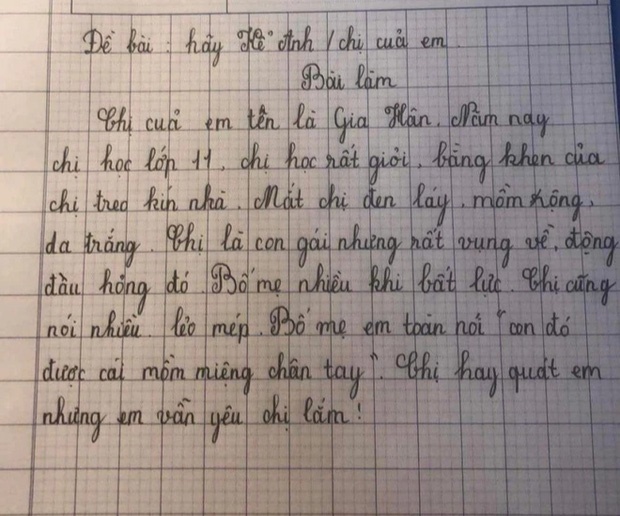 Đề bài : hãy kể anh / chị cuả em
Bài làm
Chị cuả em tên là Gia Hân. Năm nay
chị học lớp 11, chị học rất giỏi, bằng khen của
chị treo kín nhà. Mắt chị đen láy, mồm rộng,
da trắng. Chị là con gái nhưng rất vụng về, động
đâu hỏng đó. Bố mẹ nhiều khi bất lực. Chị cũng
nói nhiều. lẻo mép. Bố mẹ em toàn nói "con đó
được cái mồm miệng chân tay". Chị hay quát em
nhưng em vẫn yêu chị lắm!